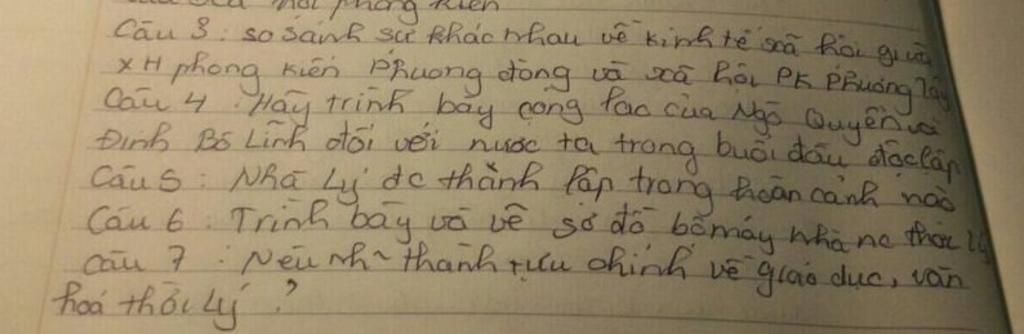 hội phong kiến
Câu 3: so sánh sự khác nhau về kinh tế xã hội giữa
XH phong kiến Phương đông và xã hội PK Phương Tây
Câu 4: Hãy trình bày công lao của Ngô Quyền và
Đinh Bộ Lĩnh đối với nước ta trong buổi đầu độc lập
Câu 5: Nhà Lý đc thành lập trong hoàn cảnh nào
Câu 6: Trình bày và vẽ sơ đồ bộ máy nhà nc thời Lý
Câu 7: Nêu nh~ thành tựu chính về giáo dục, văn
hoá thời Lý?